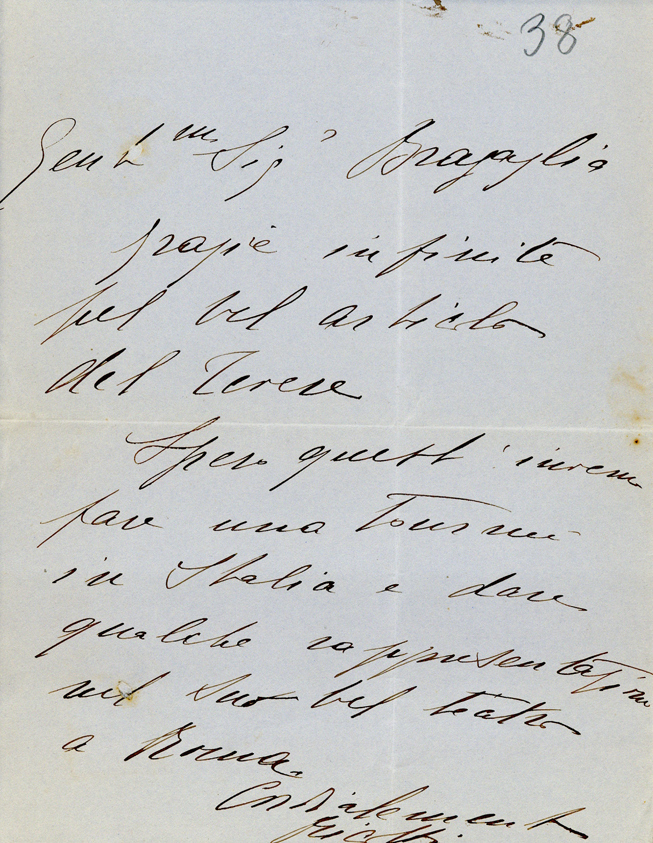 38
Gent.mo Sig.r Bragaglia
grazie infinite
pel bel articolo
del Tevere
Spero quest'inverno
fare una tournée
in Italia e dare
qualche rappresentazione
nel suo bel teatro
a Roma.
Cordialement